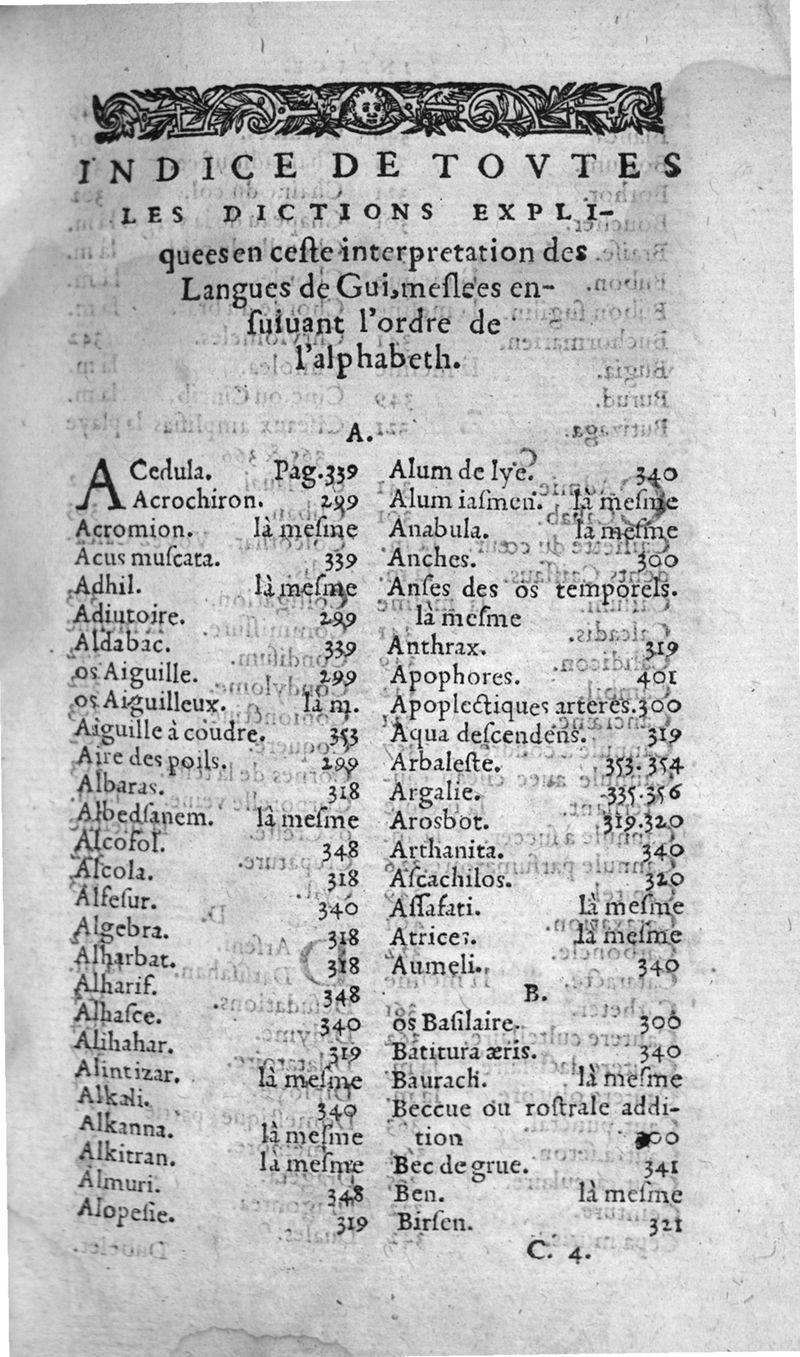 INDICE DE TOVTES
LES DICTIONS EXPLI-
quees en ceſte interpretation des
Langues de Gui, meſlees en-
ſuiuant l'ordre de
l'alphabeth.
A.
ACedula. Pag. 339
Acrochiron. 299
Acromion. là meſme
Acus muſcata. 339
Adhil. là meſme
Adiutoire. 299
Aldabac. 339
os Aiguille. 299
os Aiguilleux. là m.
Aiguille à coudre. 353
Aire des poils. 299
Albaras. 318
Albedſanem. là meſme
Alcofol. 348
Aſcola. 318
Alfeſur. 340
Algebra. 318
Alharbat. 318
Alharif. 348
Alhaſce. 340
Alihahar. 319
Alintizar. là meſme
Alkali. 340
Alkanna. là meſme
Alkitran. là meſme
Almuri. 348
Alopeſie. 319
Alum de Iye. 340
Alum iaſmeni. là meſme
Anabula. là meſme
Anches. 300
Anſes des os temporels.
là meſme
Anthrax. 319
Apophores. 401
Apoplectiques arteres. 300
Aqua deſcendens. 319
Arbaleſte. 353. 354
Argalie. 335. 356
Arosbot. 319. 320
Arthanita. 340
Aſcachilos. 320
Aſſafati. là meſme
Atrices. là meſme
Aumeli. 340
B.
os Baſilaire. 300
Batitura æris. 340
Baurach. là meſme
Beccue ou roſtrale addi-
tion 300
Bec de grue. 341
Ben. là meſme
Birſen. 321
C. 4.